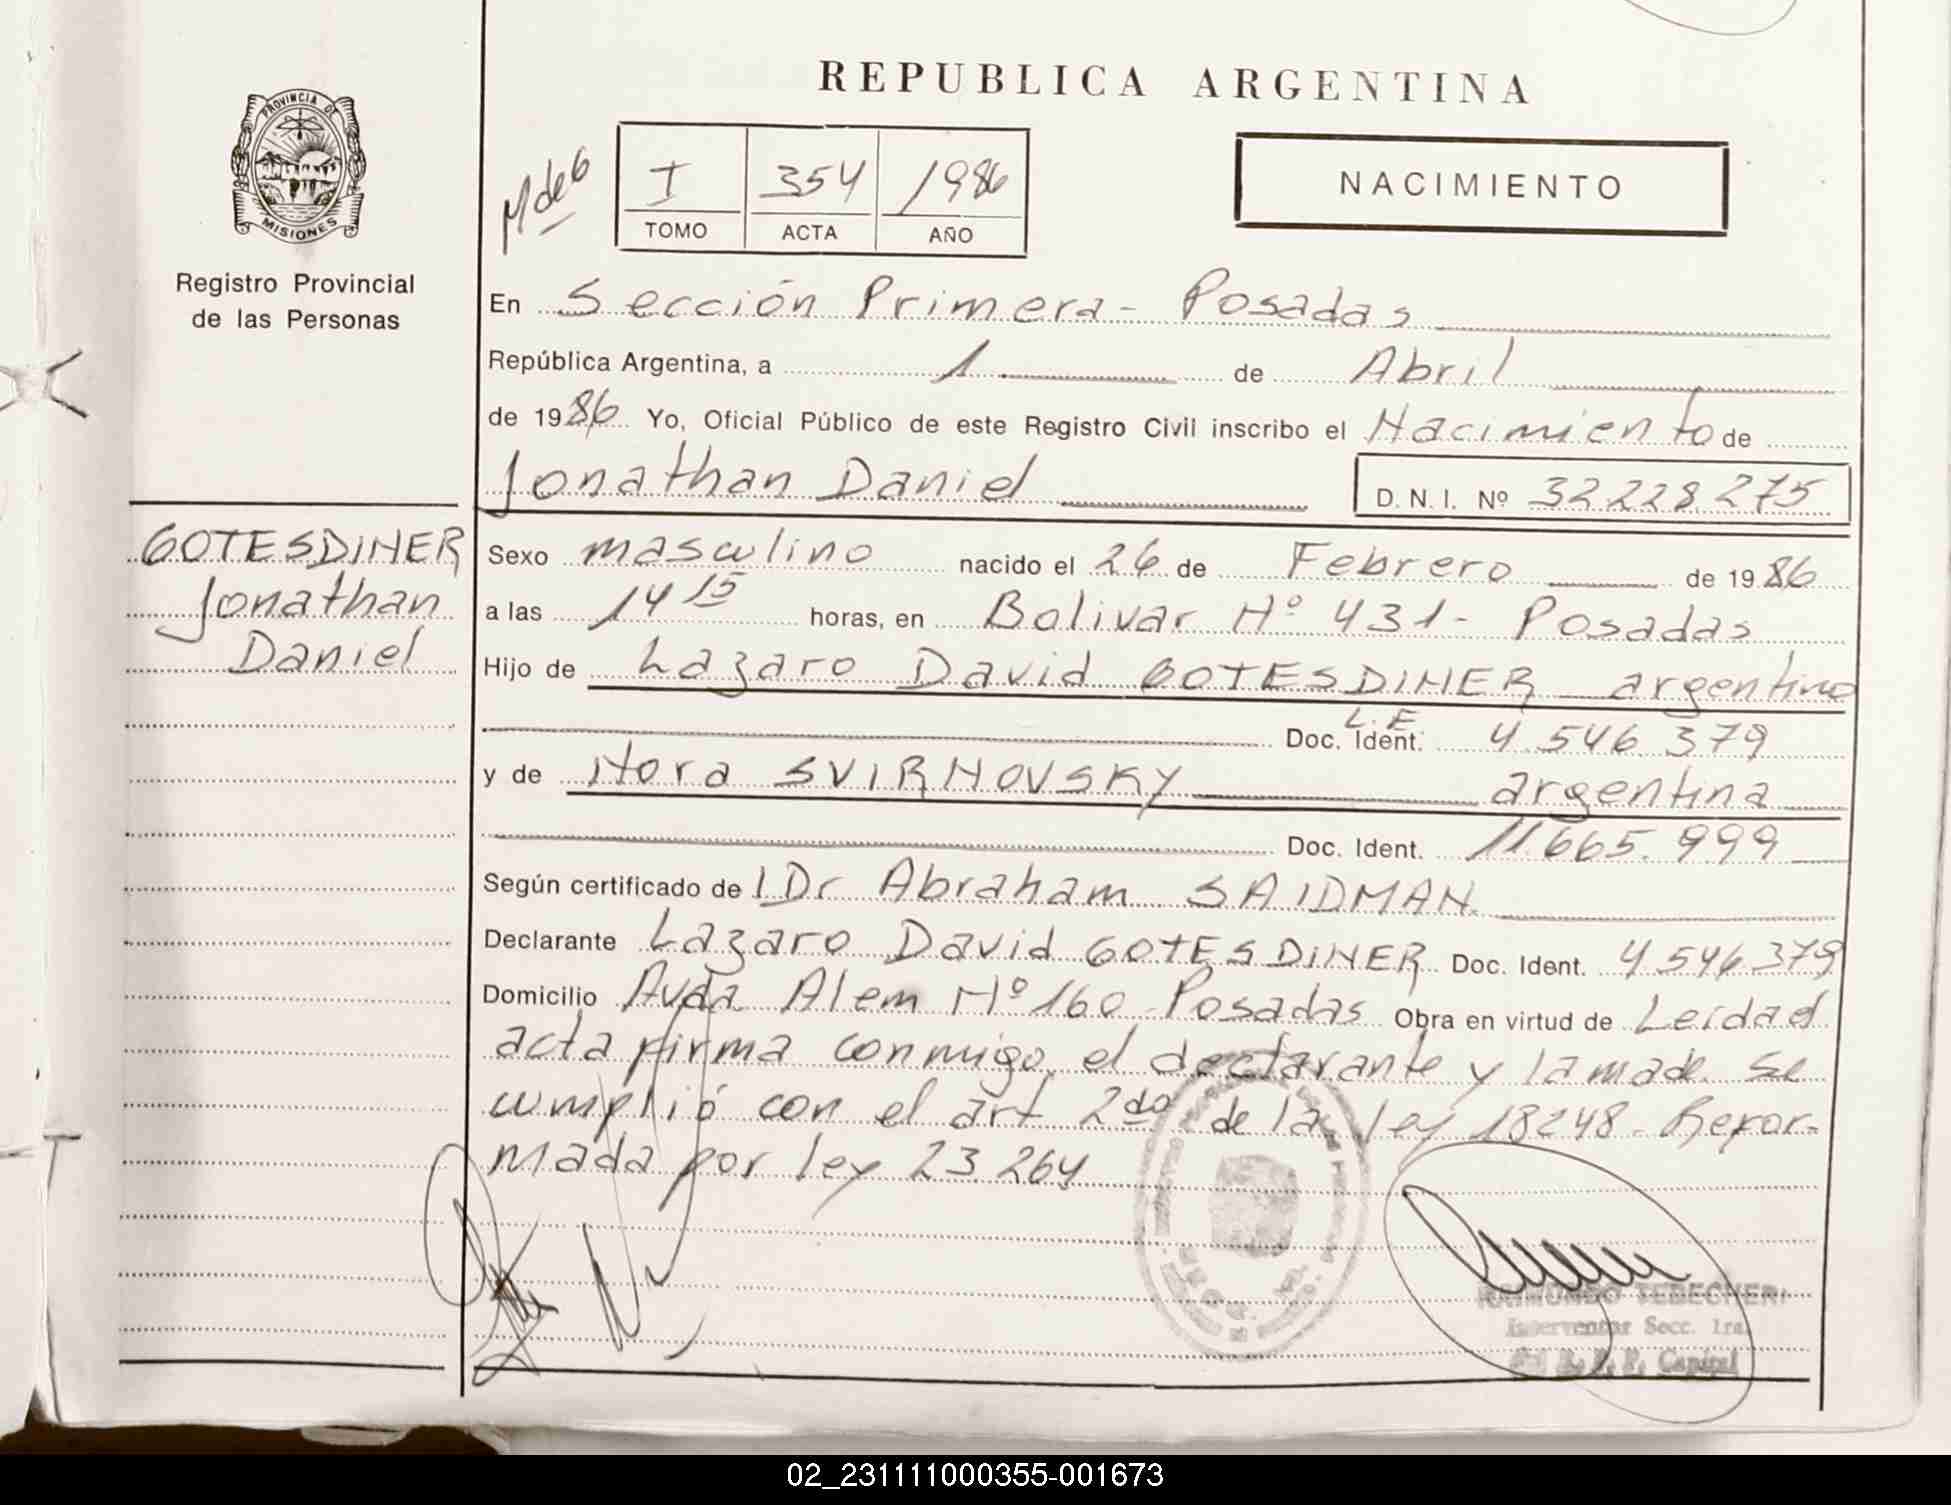 REPUBLICA ARGENTINA
PROVINCIA DE
MISIONES
Registro Provincial
de las Personas
M de 6
I 354 1986
TOMO ACTA AÑO
NACIMIENTO
En Sección Primera - Posadas
República Argentina, a 1 de Abril
de 1986 Yo, Oficial Público de este Registro Civil inscribo el Nacimiento de
Jonathan Daniel D.N.I. Nº 32.228.275
GOTESDINER
Jonathan
Daniel
Sexo masculino nacido el 26 de Febrero de 1986
a las 14 15 horas, en Bolivar Nº 431 - Posadas
Hijo de Lazaro David GOTESDINER argentino
Doc. Ident. L.E 4.546.379
y de Nora SVIRNOVSKY argentina
Doc. Ident. 11.665.999
Según certificado de 1 Dr Abraham SAIDMAN
Declarante Lazaro David GOTESDINER Doc. Ident. 4.546.379
Domicilio Avda Alem Nº 160 Posadas Obra en virtud de Leida el
acta firma conmigo el declarante y la made. se
cumplió con el art 2do de la ley 18248 - Refor-
mada por ley 23.264
RAIMUNDO TEBECHERI
Interventor Secc. 1ra
R. P. P. Capital
02_231111000355-001673